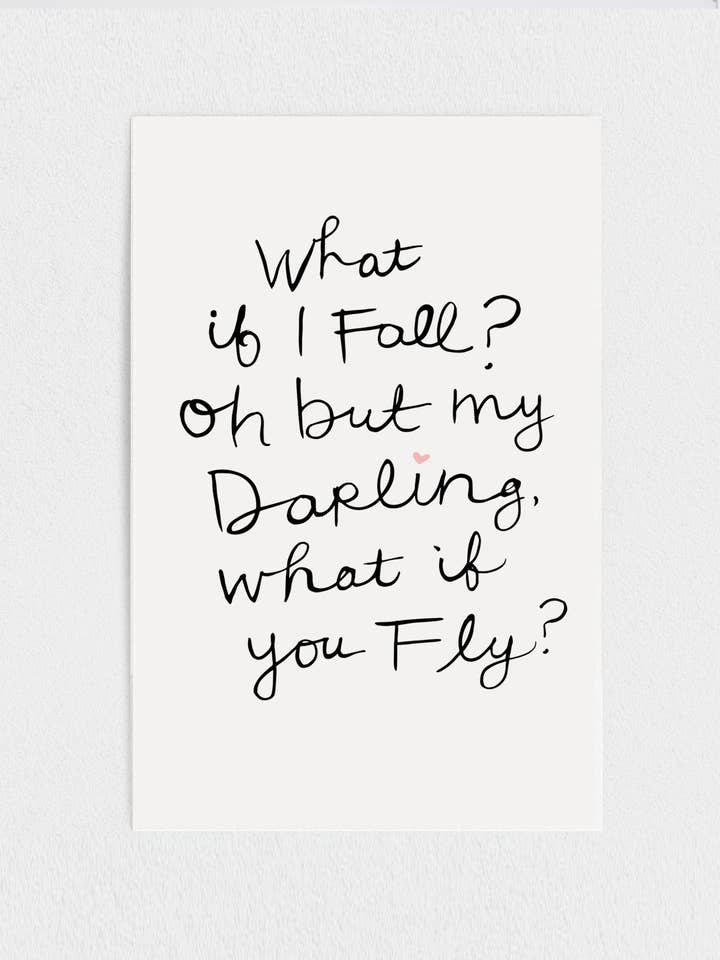 What
if I Fall?
oh but my
Darling,
what if
you Fly?